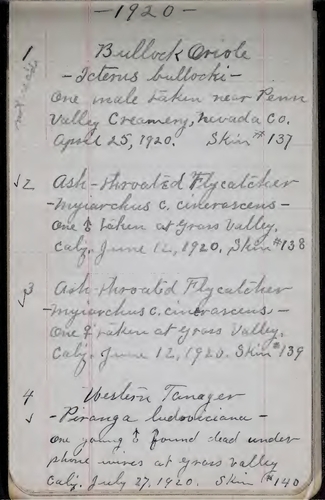 -1920-
1 Bullock Oriole
- Icterus bullocki -
One male taken near Penn
Valley Creamery, Nevada Co.
April 25, 1920. Skin # 137
√2 Ash-throated Flycatcher
- Myiarchus c. cinerascens -
One ♂ taken at Grass Valley,
Calif. June 12, 1920. Skin #138
3 Ash-throated Flycatcher
√ - Myiarchus c. cinerascens -
One ♀ taken at Grass Valley,
Calif. June 12, 1920. Skin #139
4 Western Tanager
√ - Piranga ludoviciana -
One young ♂ found dead under
phone wires at Grass Valley
Calif. July 27, 1920. Skin #140